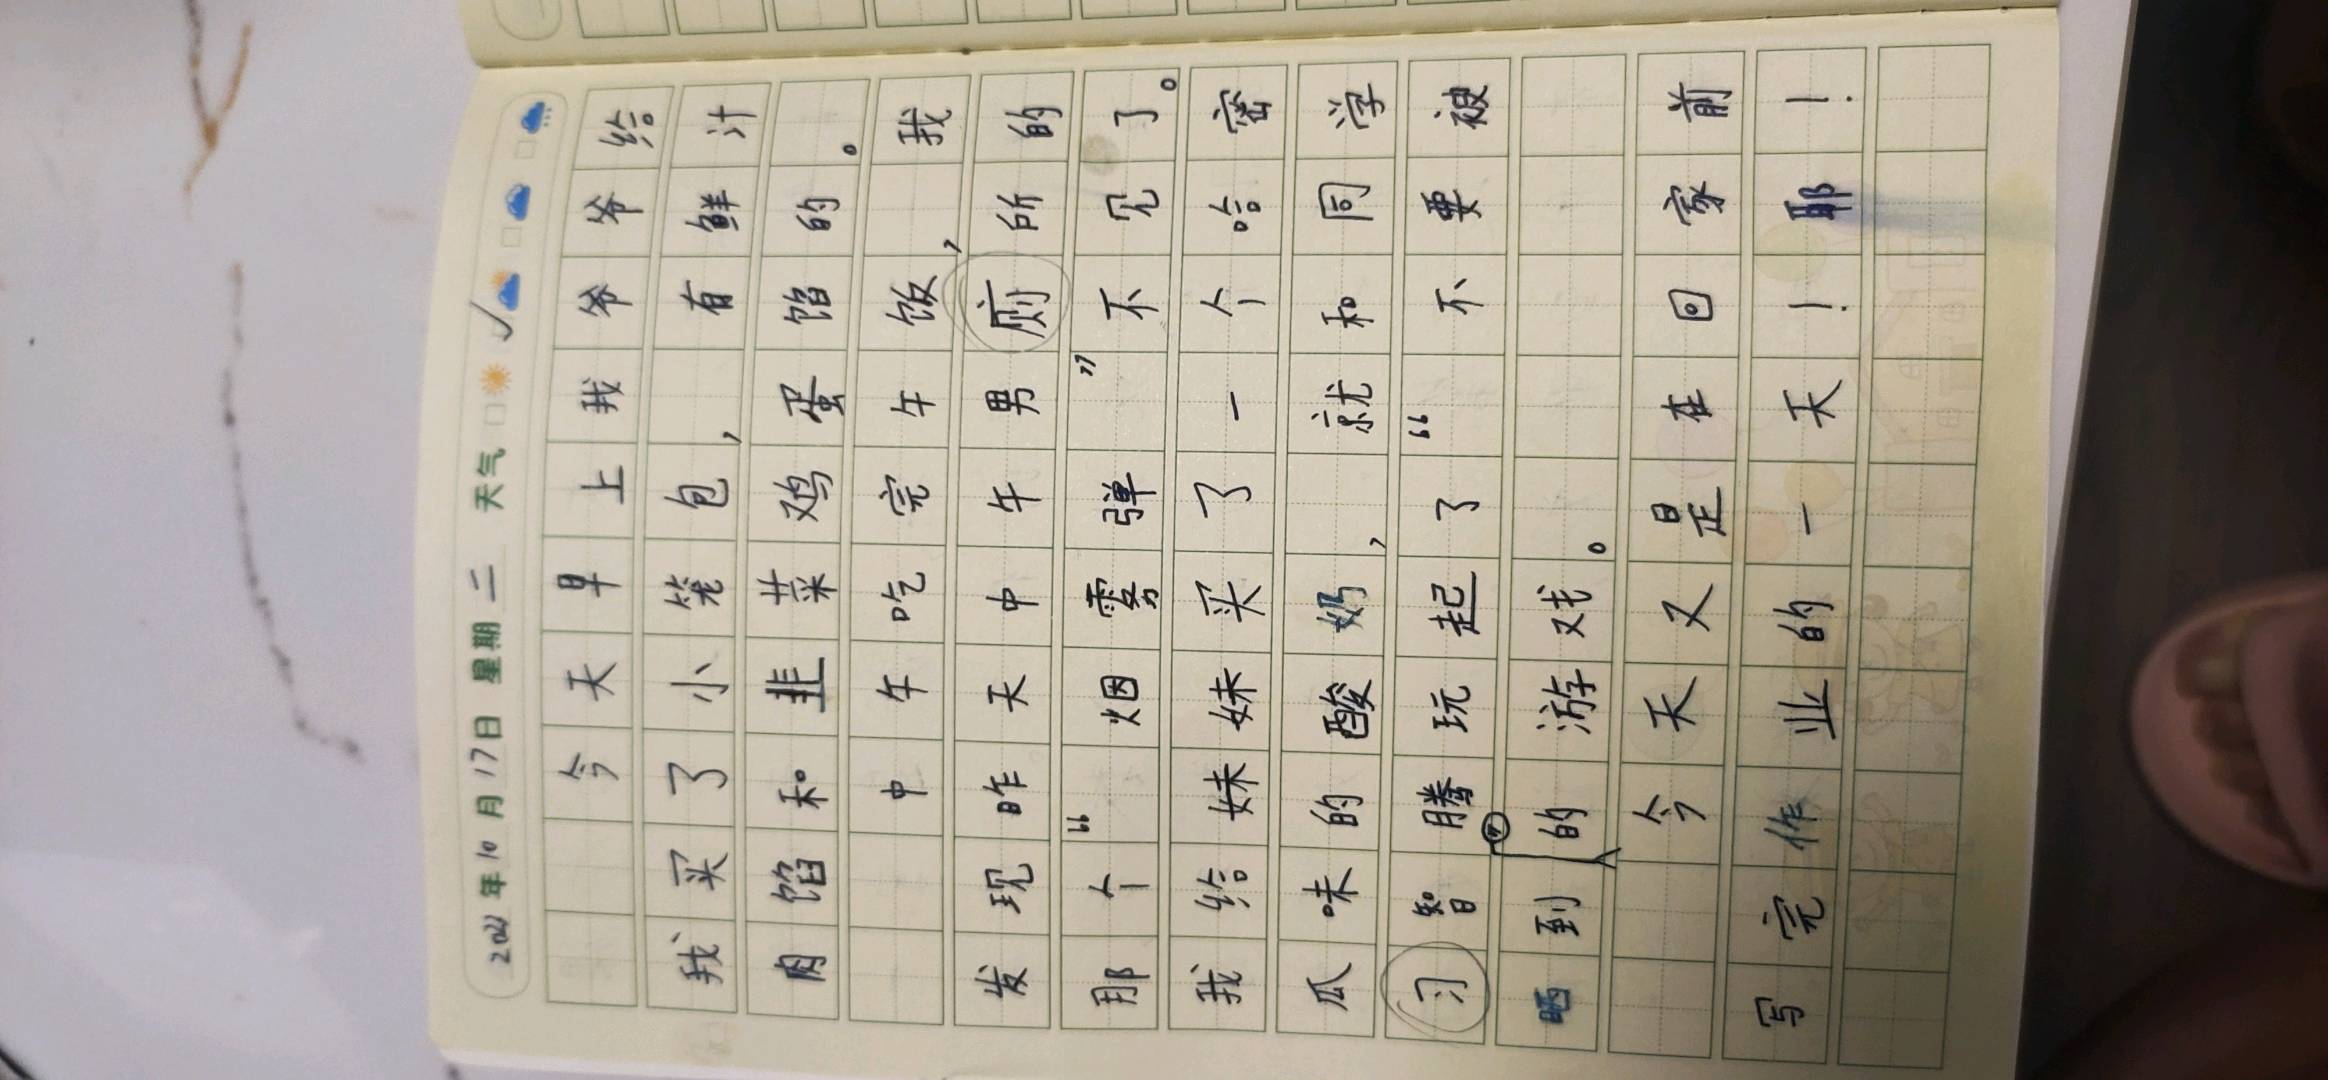 2023年10月17日 星期二 天气
今天早上我爷爷给
我买了小笼包，有鲜汁
肉馅和韭菜鸡蛋馅的。
中午吃完午饭，我
发现昨天中午男厕所的
那个“烟雾弹”不见了。
我给妹妹买了一个哈密
瓜味的酸奶，就和同学
习智腾玩起了“不要被
晒到”的游戏。
今天又是在回家前
写完作业的一天！耶！